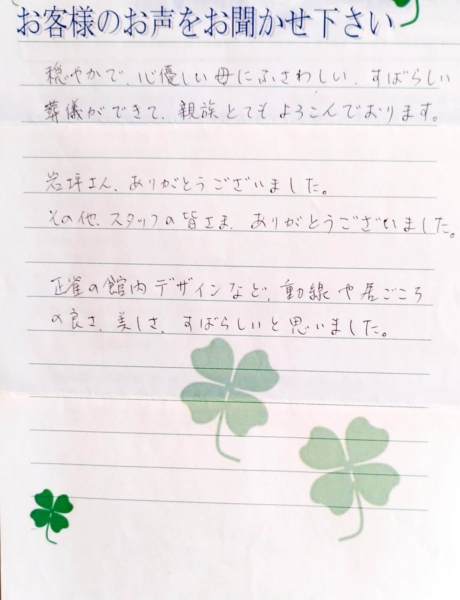 お客様のお声をお聞かせ下さい
穏やかで、心優しい母にふさわしい、すばらしい
葬儀ができて、親族とてもよろこんでおります。
岩坪さん、ありがとうございました。
その他、スタッフの皆さま、ありがとうございました。
正雀の館内デザインなど、動線や居ごこち
の良さ、美しさ、すばらしいと思いました。